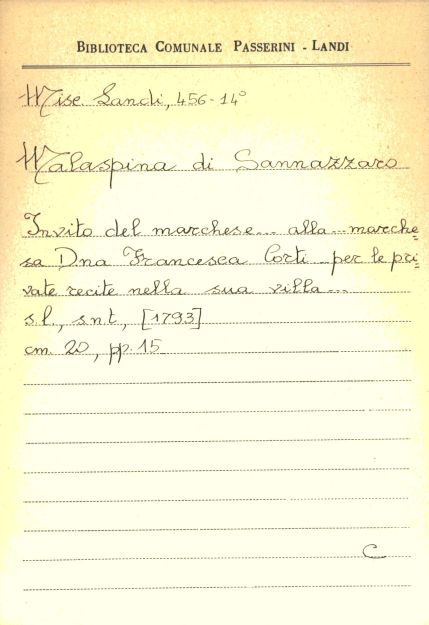 BIBLIOTECA COMUNALE PASSERINI - LANDI
Misc Landi, 456-14°
Malaspina di Sannazzaro
Invito del marchese... alla... marche=
sa Dna Francesca Corti per le pri=
vate recite nella sua villa...
s.l., s.n.t, [1793]
cm. 20, pp. 15
C